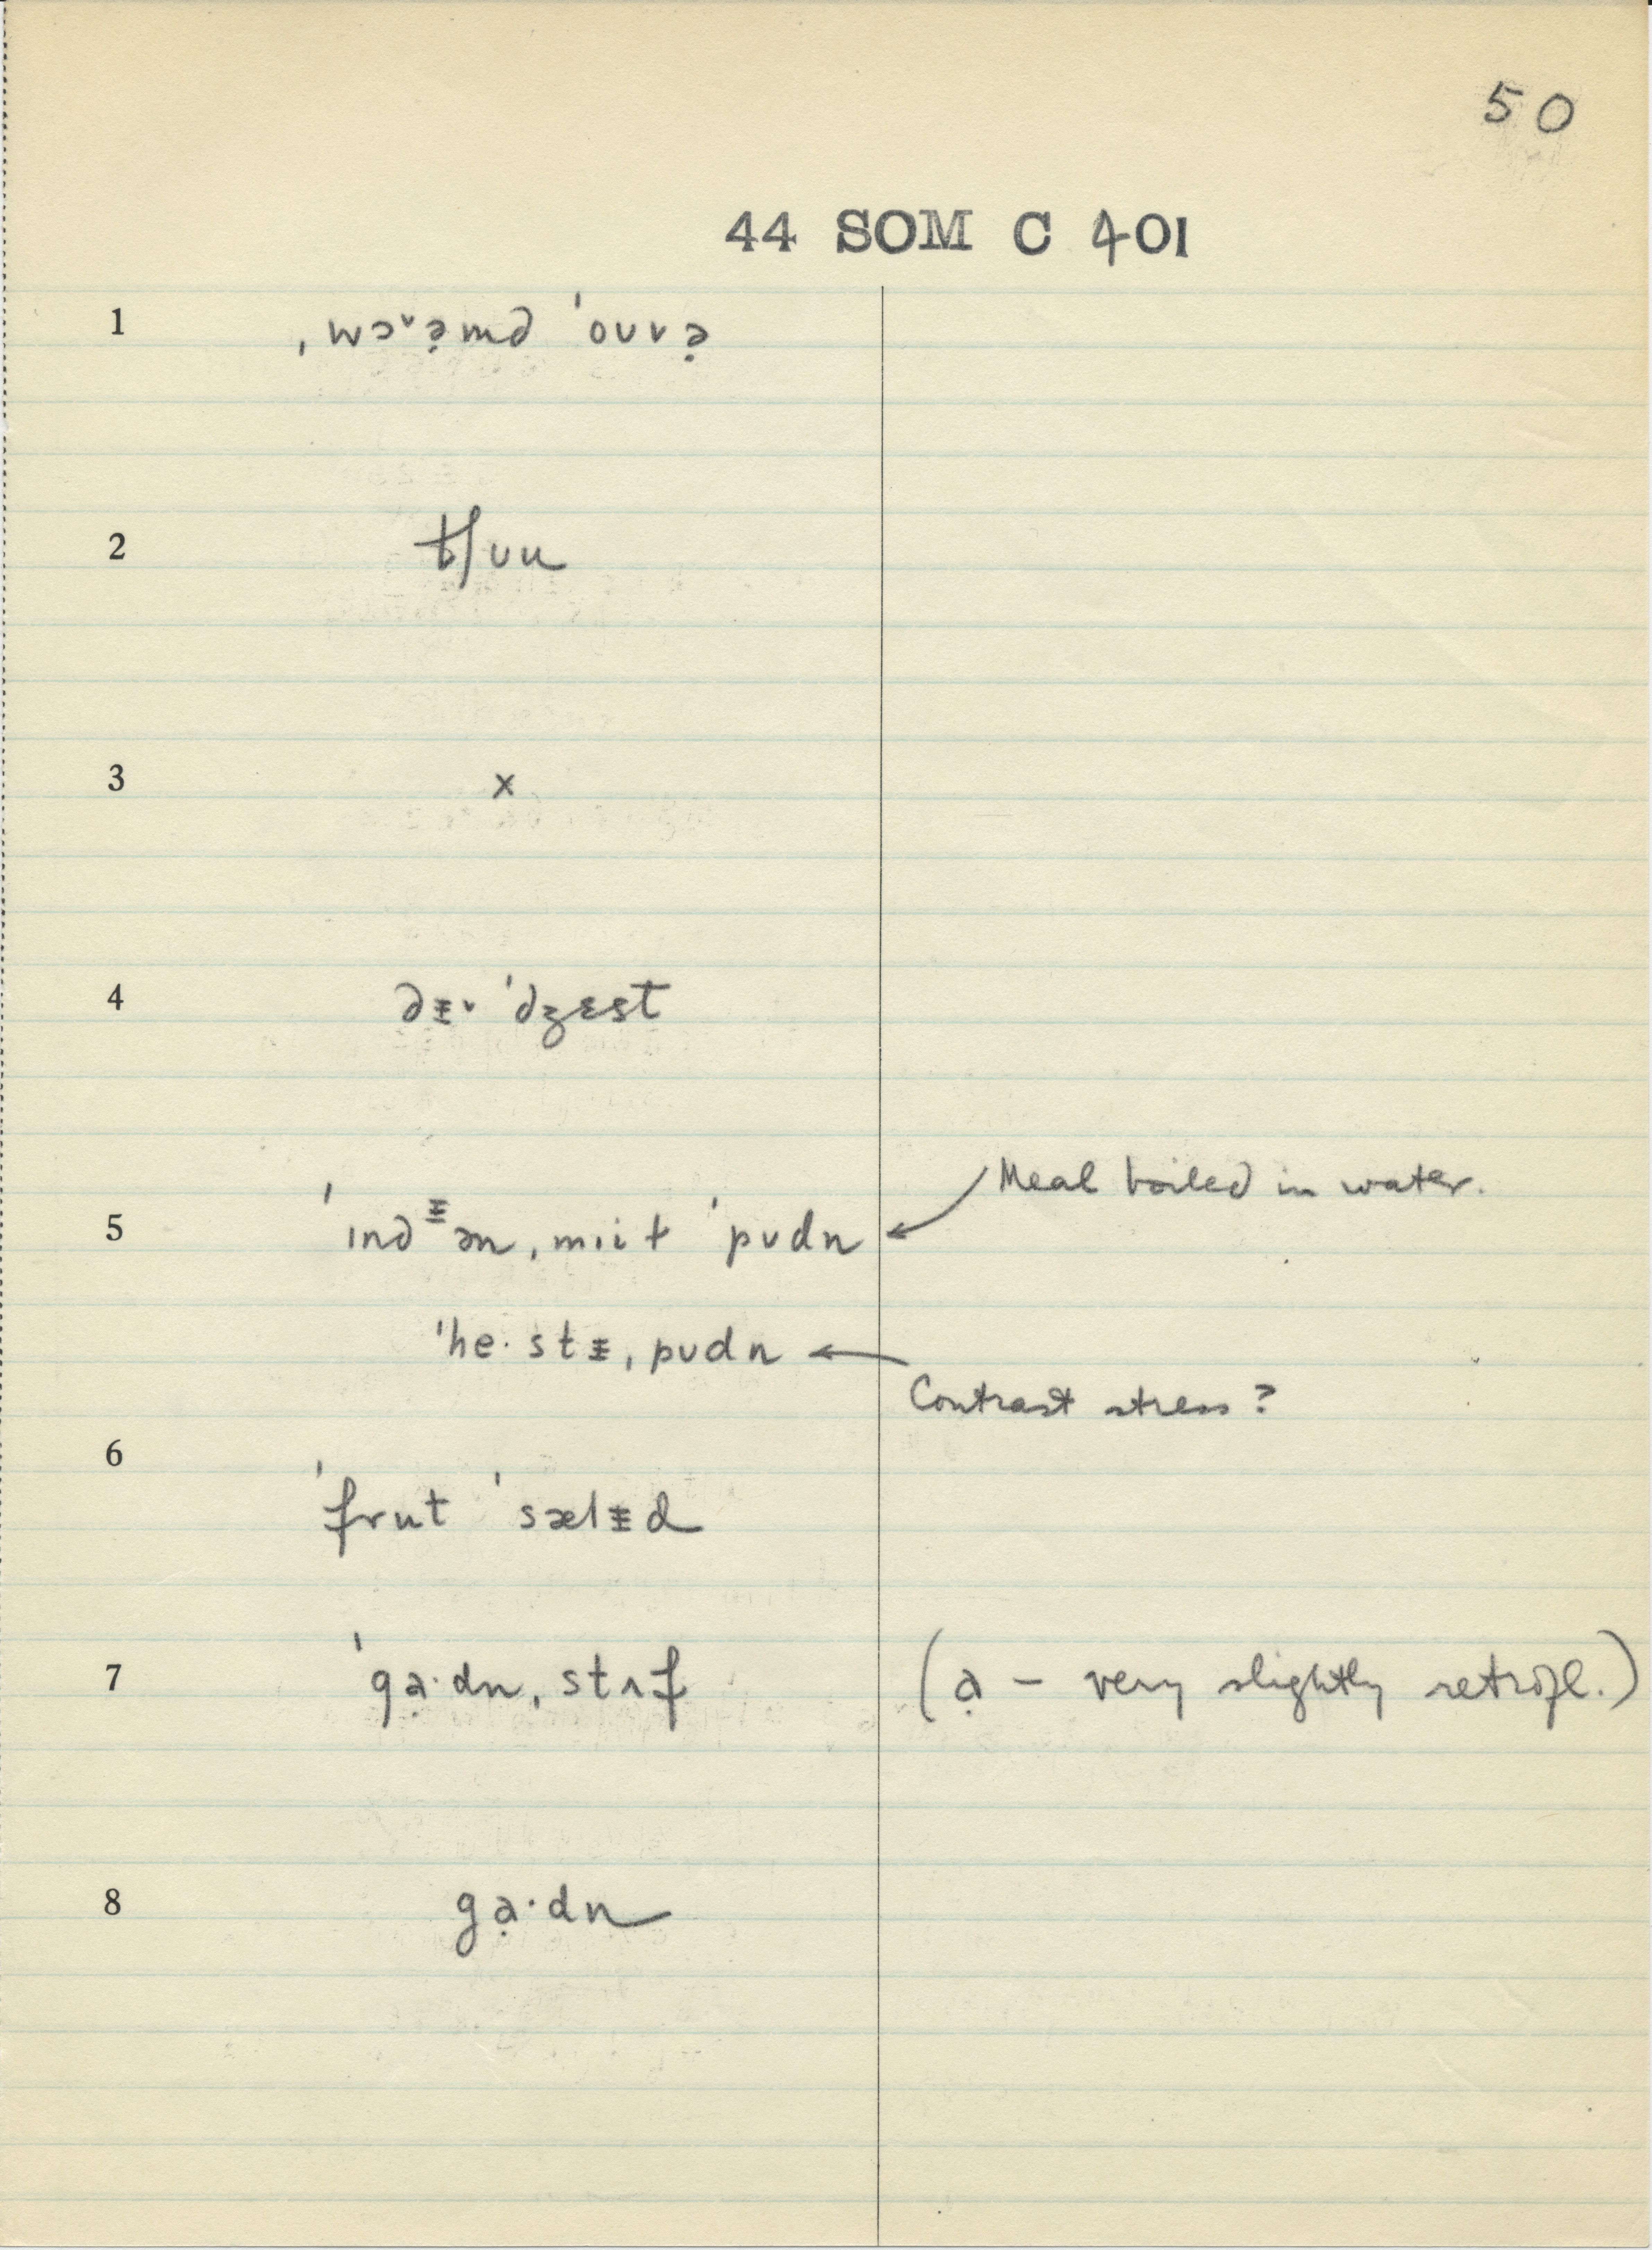 50
44 SOM C 401
1 ˌwɔ˅ə̣md ˈouvə̣
2 tʃʊu
3 x
4 dɪ̵˅ ˈdʒɛst
5 ˈɪndᵻən ˌmɪit ˈpʊdn Meal boiled in water.
ˈhe·stᵻ ˌpʊdn Contrast stress?
6
ˈfrut ˈsælᵻd
7 ˈgạ·dn ˌstʌf (ạ – very slightly retrofl.)
8 gạ·dn